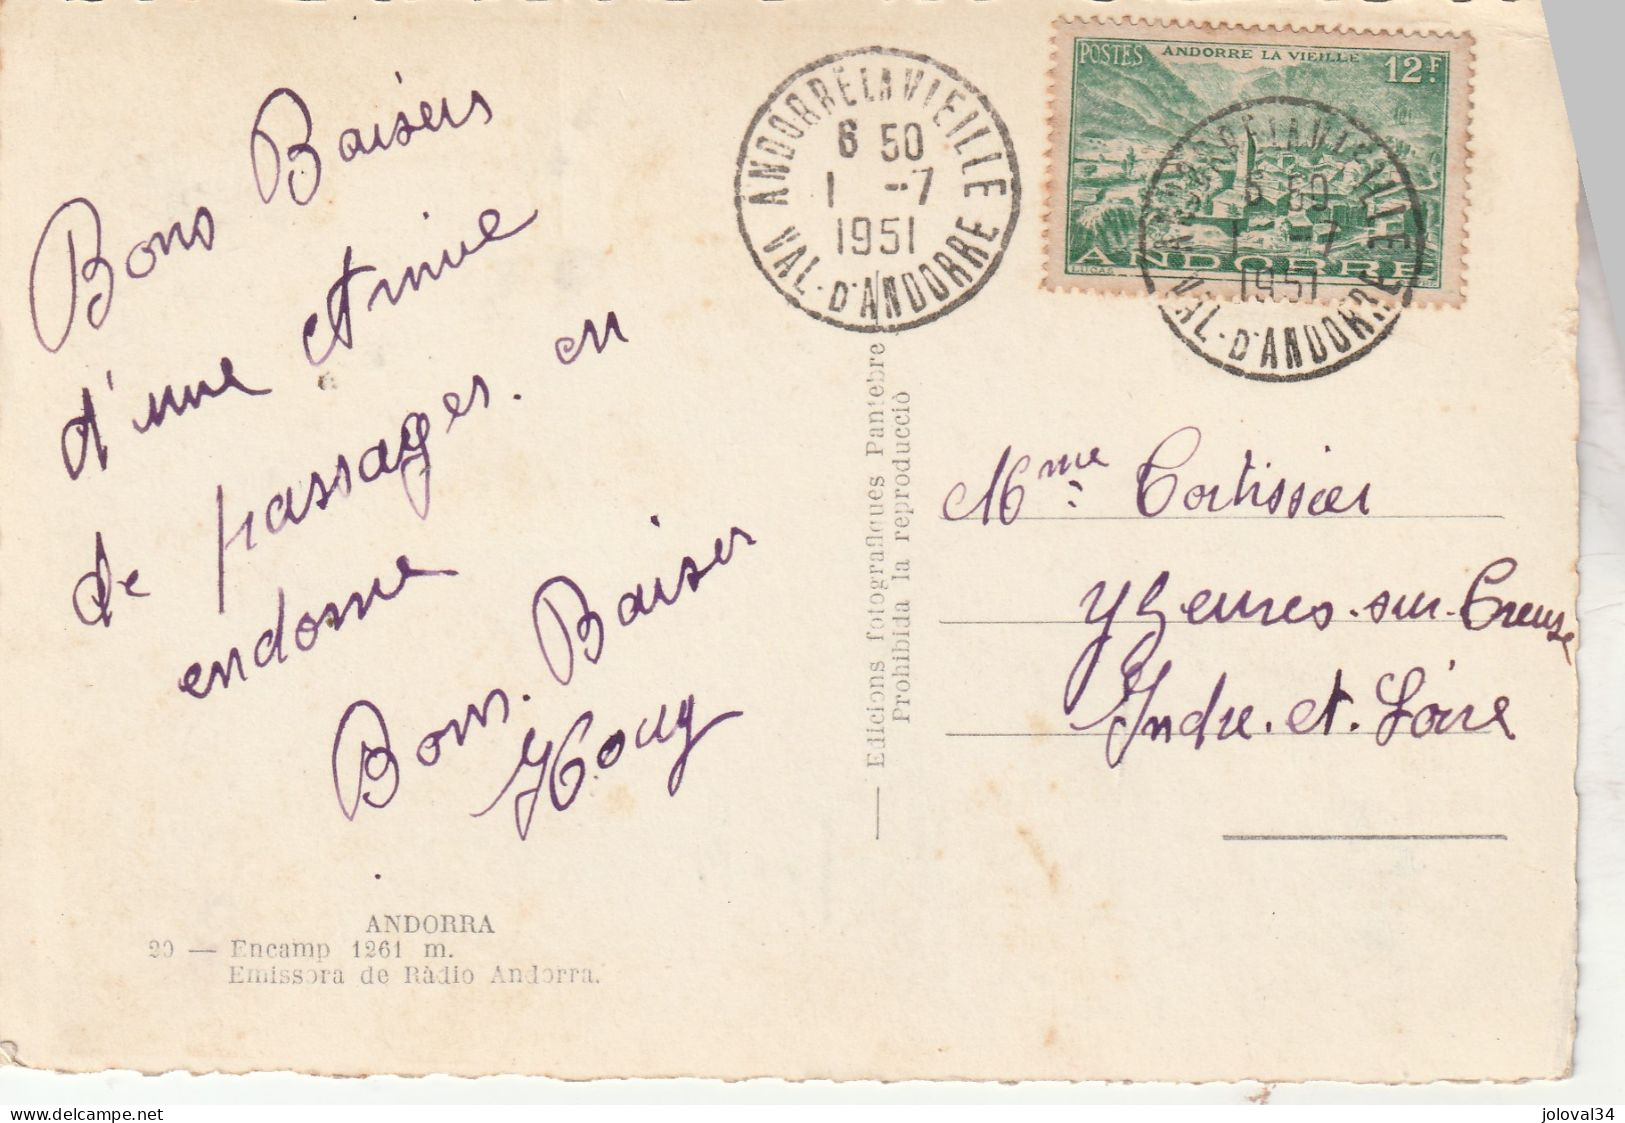 Bons Baisers
d'une Amie
de passages. en
endorre
Bons. Baiser
ANDORRA
20 — Encamp 1261 m.
Emissora de Ràdio Andorra.
Edicions fotografiques Pantebre
Prohibida la reproducció
ANDORRE LA VIEILLE
6 50
1 -7
1951
VAL-D'ANDORRE
POSTES ANDORRE LA VIEILLE 12F
ANDORRE
LUCAS
ANDORRE LA VIEILLE
6 50
1 -7
1951
VAL-D'ANDORRE
Mme Cortissier
Yzeures-sur-Creuse
Indre-et-Loire
delcampe.net
joloval34